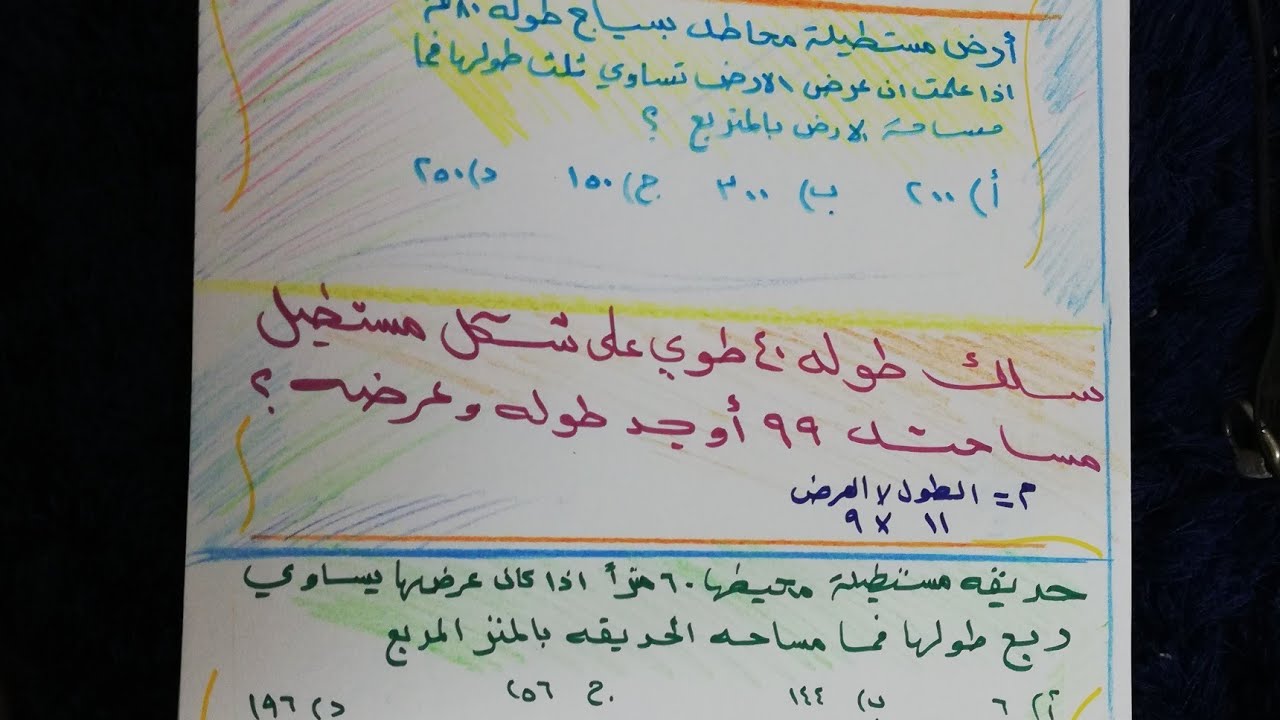 أرض مستطيلة محاطة بسياج طوله ٨٠ متر
اذا علمت ان عرض الارض تساوي ثلث طولها فما
مساحة الارض بالمتر بع ؟
أ) ٢٠٠ ب) ٣٠٠ ج) ١٥٠ د) ٢٥٠
سلك طوله ٤٠ طوي على شكل مستطيل
مساحته ٩٩ أوجد طوله وعرضه ؟
م = الطول × العرض
١١ × ٩
حديقه مستطيلة محيطها ٦٠ متراً اذا كان عرضها يساوي
ربع طولها فما مساحه الحديقه بالمتر المربع
أ) ٦ ب) ١٤٤ ج ٢٥٦ د) ١٩٦